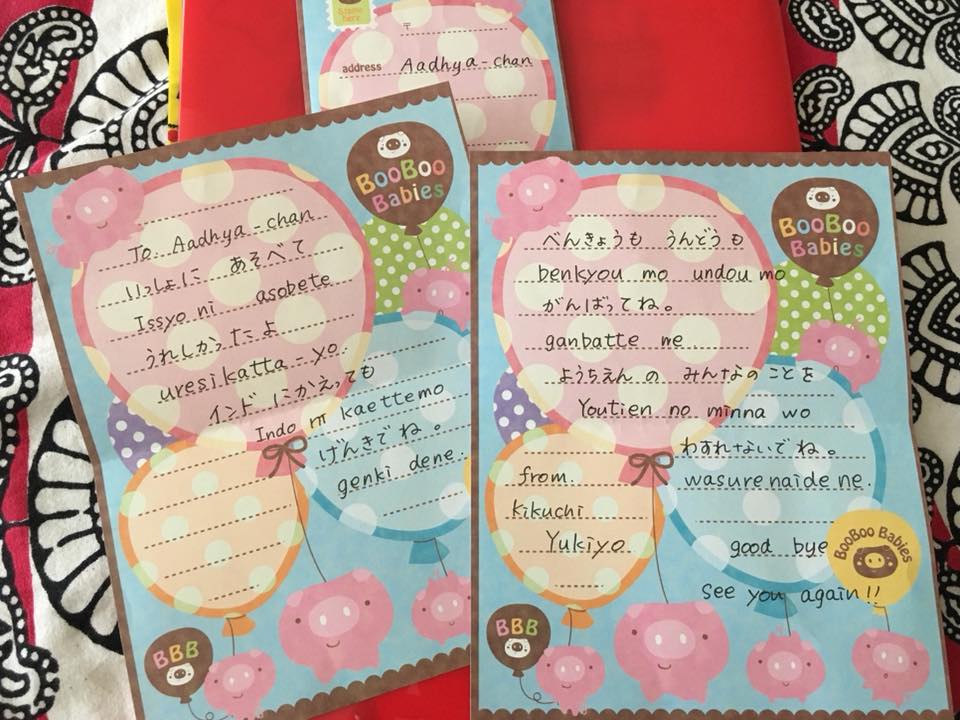 〒
address Aadhya-chan
BooBoo
Babies
To Aadhya-chan
いっしょに あそべて
Issyo ni asobete
うれしかったよ
uresikatta-yo.
インド にかえっても
Indo ni kaettemo
げんきでね。
genki dene.
BBB
BooBoo
Babies
べんきょうも うんどうも
benkyou mo undou mo
がんばってね。
ganbatte me
ようちえん の みんなのことを
Youtien no minna wo
わすれないでね。
wasurenaide ne.
from.
kikuchi
Yukiyo.
good bye
see you again!!
BooBoo Babies
BBB